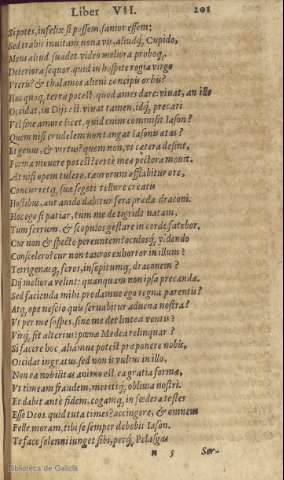 Liber VII. 201
Si potes, infelix si possem, sanior essem:
Sed trahit inuitam noua vis, aliudq́, Cupido,
Mens aliud suadet. video meliora proboq́,
Deteriora sequor. quid in hospite regia virgo
Vreris? & thalamos alieni concipis orbis?
Hæc quoq, terra potest, quod ames dare. viuat, an ille
Occidat, in Dijs est. viuat tamen, idq́, precari
Vel sine amore licet. quid enim commisit Iason?
Quem nisi crudelem non tangat Iasonis ætas?
Et genus, & virtus? quem non, vt cetera desint,
Forma mouere potest? certè mea pectora mouit.
At nisi opem tulero, taurorum afflabitur ore,
Concurretq́, suæ segeti tellure creatis
Hostibus, aut auido dabitur fera præda draconi.
Hoc ego si patiar, tum me de tigride natam,
Tum ferrum, & scopulos gestare in corde fatebor.
Cur non & specto pereuntem? oculosq́, videndo
Conscelero? cur non tauros exhortor in illum?
Terrigenasq́, feros, insopitumq́, draconem?
Dij meliora velint: quanquam non ista precanda,
Sed facienda mihi. prodamne ego regna parentis?
Atq, ope nescio quis seruabitur aduena nostra?
Vt per me sospes, sine me det lintea ventis?
Virq́, sit alterius: pœnæ Medea relinquar?
Si facere hoc, aliamue potest præponere nobis,
Occidat ingratus. sed non is vultus in illo,
Non ea nobilitas animo est, ea gratia formæ,
Vt timeam fraudem, meritiq́, obliuia nostri.
Et dabit antè fidem. cogamq́, in fœdera testes
Esse Deos. quid tuta times? accingere, & omnem
Pelle moram, tibi se semper debebit Iason.
Te face solenni iunget sibi, perq́, Pelasgas
N 5 Ser-
Biblioteca de Galicia